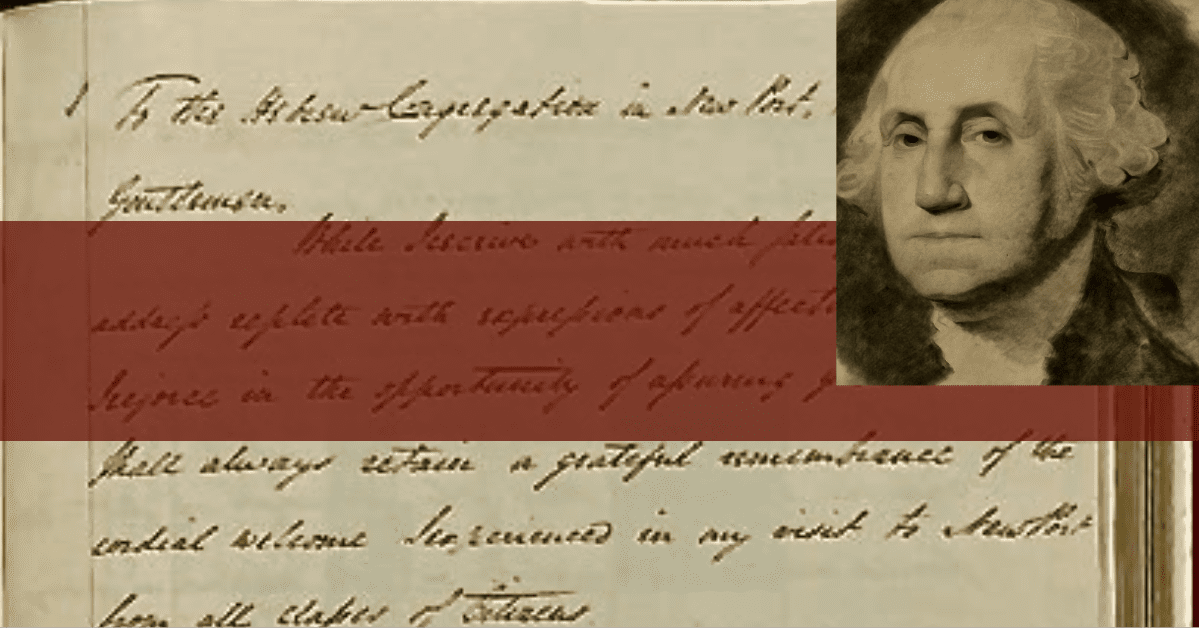 1 To the Hebrew Congregation in New Port,
Gentlemen.
While I receive with much
address replete with expressions of
I rejoice in the opportunity of assuring
shall always retain a grateful remembrance of the
cordial welcome I experienced in my visit to New Port
from all classes of Citizens